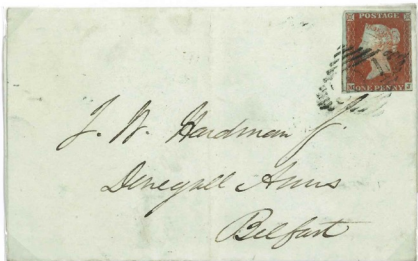 POSTAGE
ONE PENNY
J. W. Hardman Jr.
Donegall Arms
Belfast